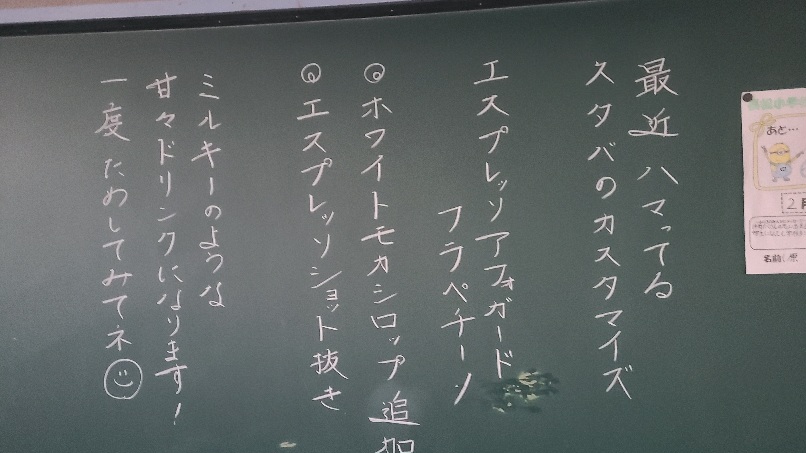 最近ハマってる
スタバのカスタマイズ
エスプレッソアフォガード
フラペチーノ
◎ホワイトモカシロップ追加
◎エスプレッソショット抜き
ミルキーのような
甘々ドリンクになります!
一度ためしてみてネ☺
あと…
2月
名前